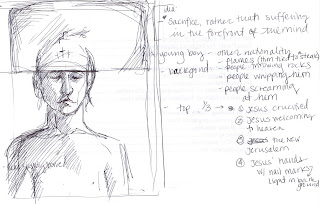 dia
* Sacrifice, rather than suffering
in the forefront of the mind
young boy - other nationality
- background
- flames (him tied to stake)
- people throwing rocks
- people whipping him
- people screaming
at him
- top 1/3 → ① Jesus crucified
② Jesus welcoming
to heaven
③ the New
Jerusalem
④ Jesus' hands
w/ nail marks